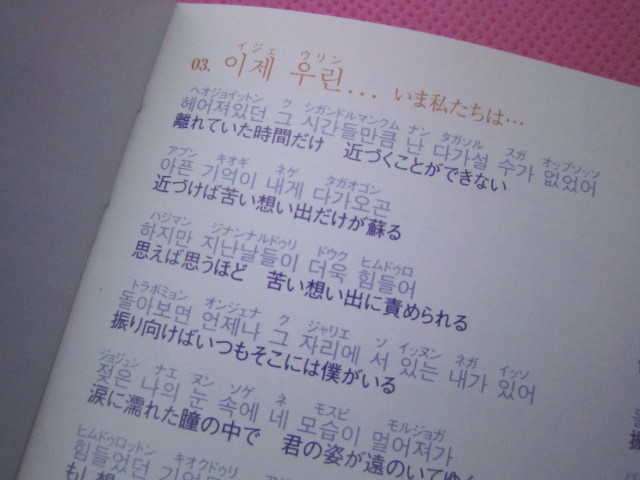 イジェ ウリン
03. 이제 우린... いま私たちは…
ヘオジョイットン ク シガンドルマンクム ナン タガソル スガ オップソッソ
헤어져있던 그 시간들만큼 난 다가설 수가 없었어
離れていた時間だけ 近づくことができない
アプン キオギ ネゲ タガオゴン
아픈 기억이 내게 다가오곤
近づけば苦い想い出だけが蘇る
ハジマン ジナンナルドゥリ ドウク ヒムドゥロ
하지만 지난날들이 더욱 힘들어
思えば思うほど 苦い想い出に責められる
トラボミョン オンジェナ ク ジャリエ ソ イッヌン ネガ イッソ
돌아보면 언제나 그 자리에 서 있는 내가 있어
振り向けばいつもそこには僕がいる
ジョジュン ナエ ヌン ソゲ ネ モスビ モルジョガ
젖은 나의 눈 속에 네 모습이 멀어져가
涙に濡れた瞳の中で 君の姿が遠のいてゆく
ヒムドゥロットン キオクドゥリ
힘들었던 기억들이